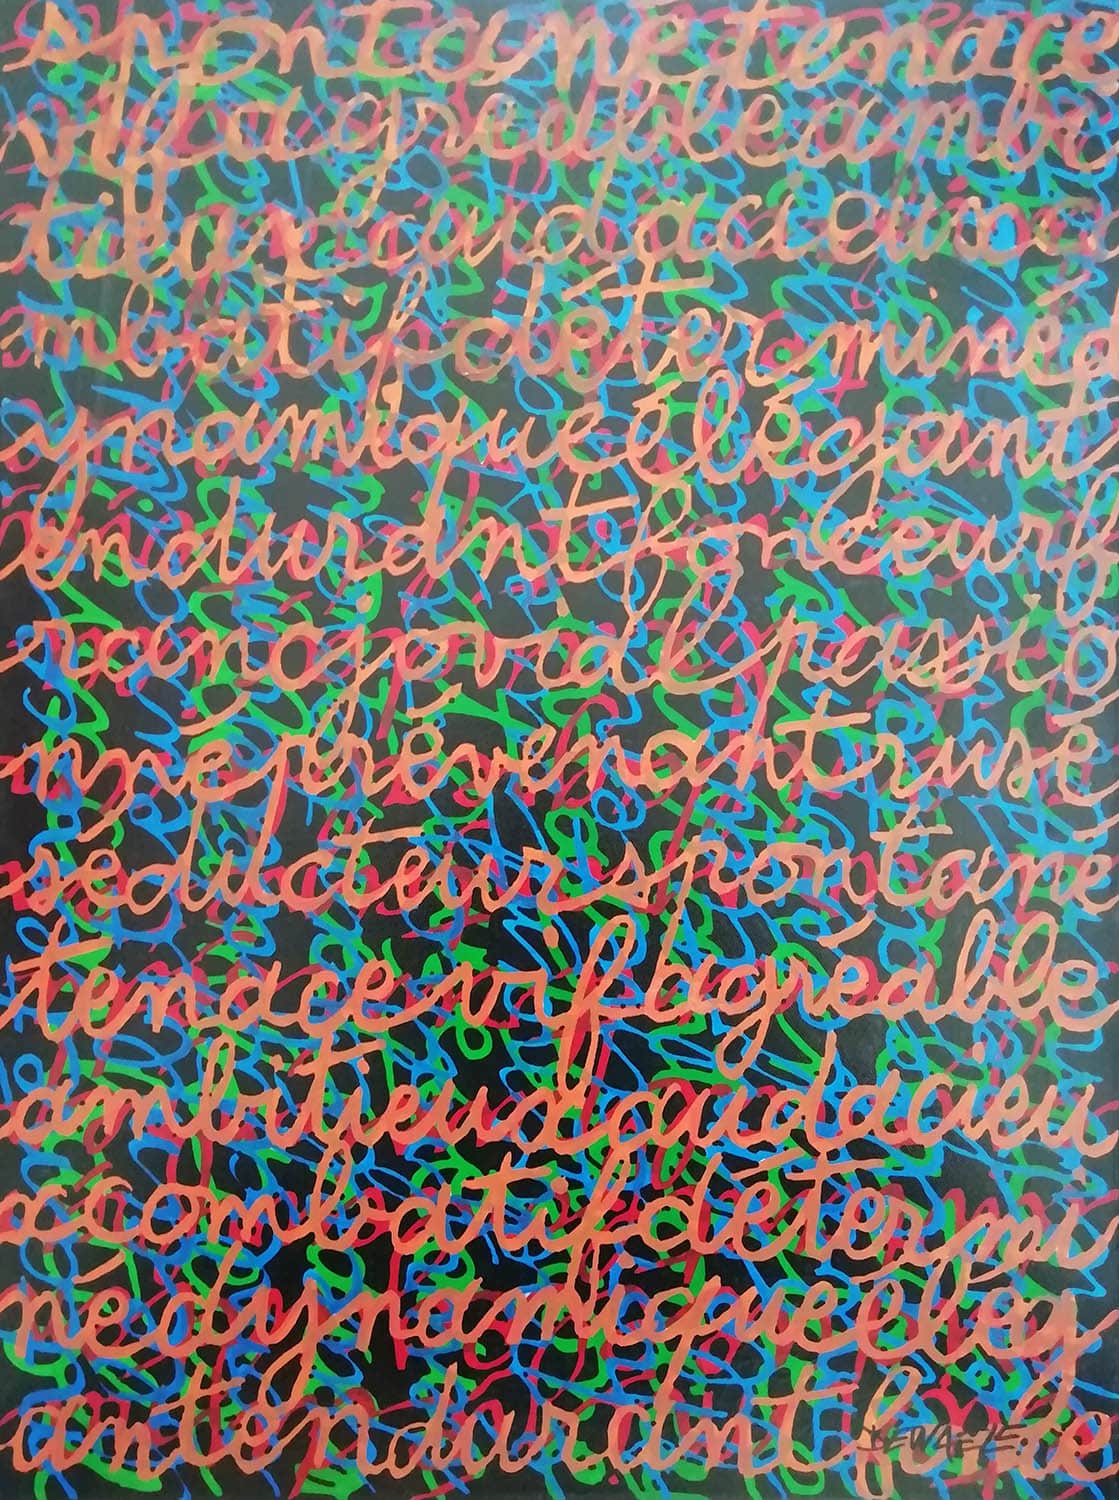 spontanétenace
vifagréableambi
tieuxaudacieuxco
mbatifdéterminéd
ynamiqueélégant
endurantfonceurf
rancjovialpassio
nnéprévenantrusé
séducteurspontané
tenacevifagréable
ambitieuxaudacieu
xcombatifdétermi
nédynamiqueélég
antendurantfonce